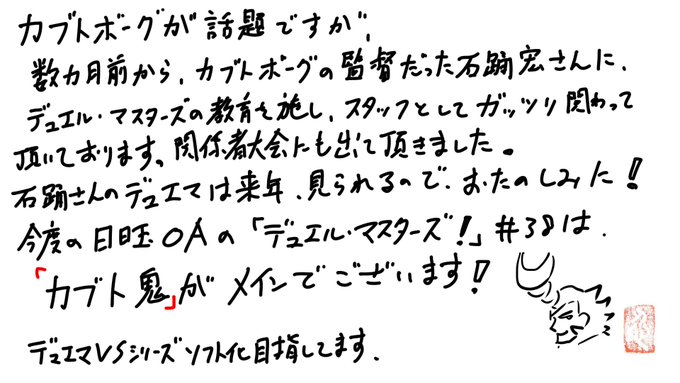 カブトボーグが話題ですが、
数カ月前から、カブトボーグの監督だった石踊宏さんに、
デュエル・マスターズの教育を施し、スタッフとしてガッツリ関わって
頂いております。関係者大会にも出て頂きました。
石踊さんのデュエマは来年、見られるので、おたのしみに!
今度の日曜OAの「デュエル・マスターズ!」#38は、
「カブト鬼」がメインでございます!
デュエマVSシリーズソフト化目指してます.